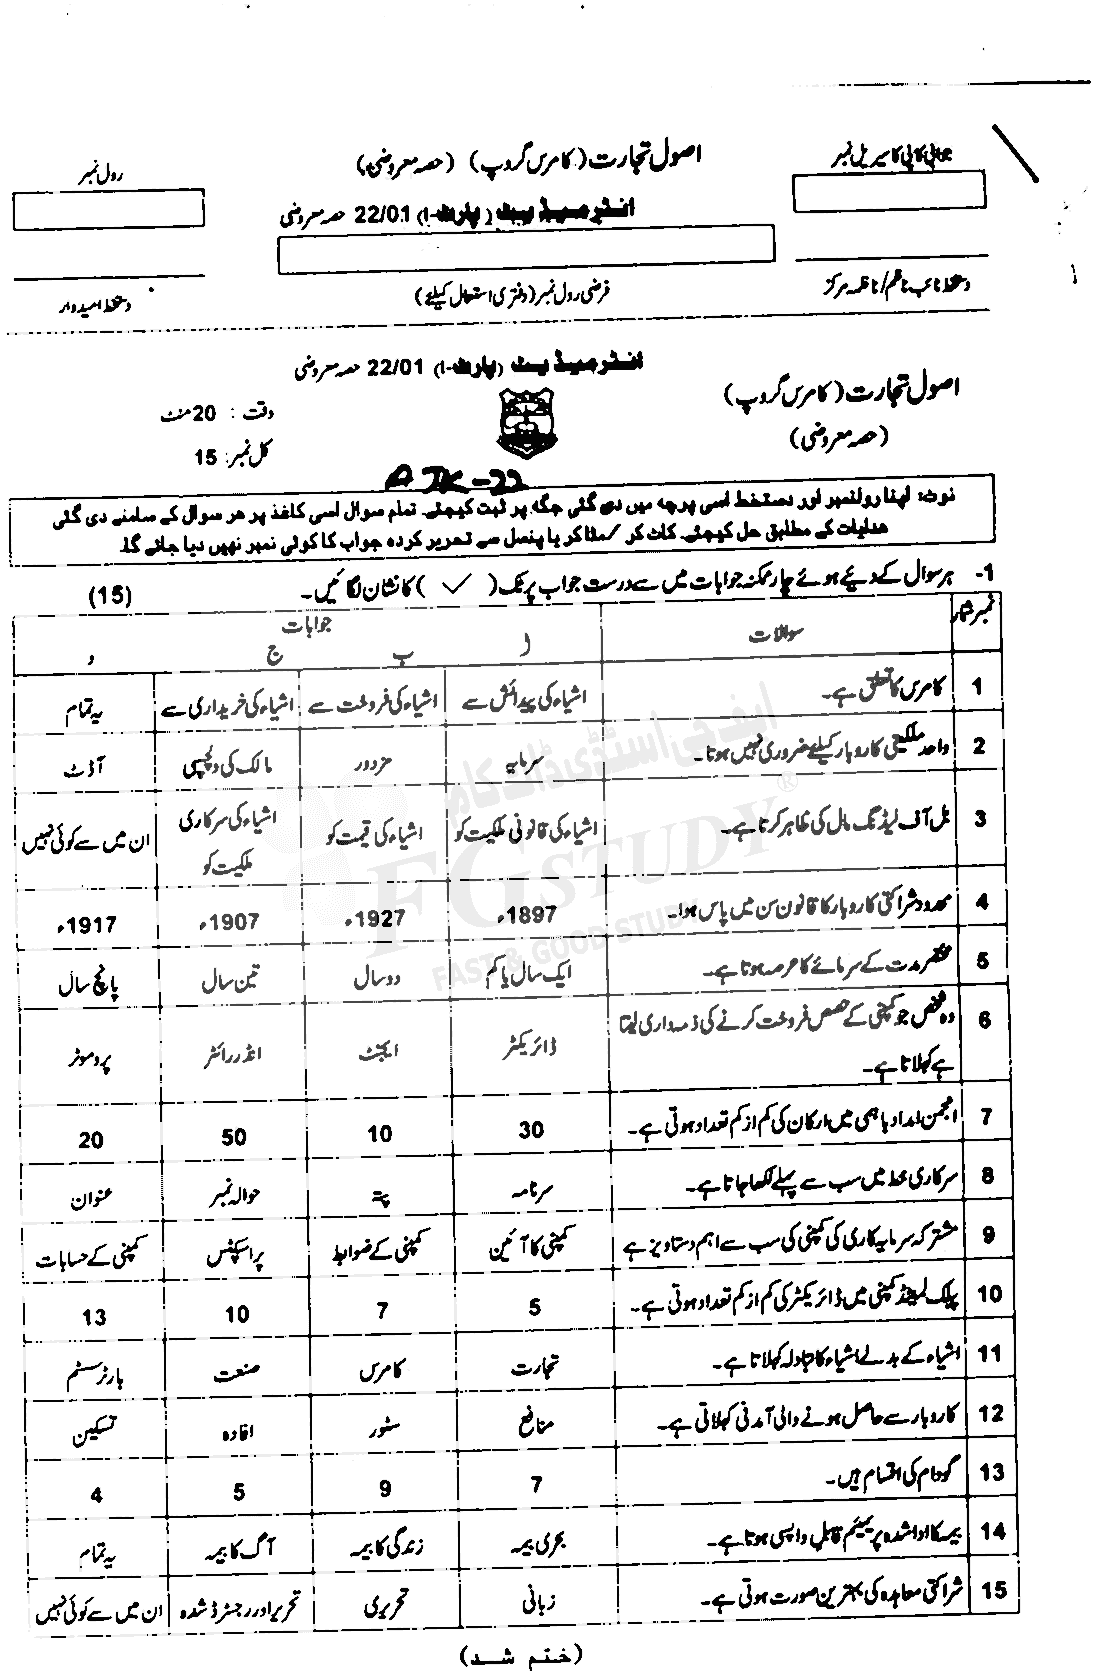 اصول تجارت (کامرس گروپ) (حصہ معروضی)
جوابی کاپی کا سیریل نمبر
رول نمبر
انٹرمیڈیٹ (پارٹ-I) 22/01 حصہ معروضی
دستخط نائب ناظم/ناظمہ مرکز
فرضی رول نمبر (دفتری استعمال کیلئے)
دستخط امیدوار
انٹرمیڈیٹ (پارٹ-I) 22/01 حصہ معروضی
اصول تجارت (کامرس گروپ)
(حصہ معروضی)
وقت : 20 منٹ
کل نمبر: 15
AJK-22
نوٹ: اپنا رولنمبر اور دستخط اسی پرچہ میں دی گئی جگہ پر ثبت کیجئے۔ تمام سوال اسی کاغذ پر ھر سوال کے سامنے دی گئی
ھدایات کے مطابق حل کیجئے۔ کاٹ کر / مٹا کر یا پنسل سے تحریر کردہ جواب کا کوئی نمبر نہیں دیا جائے گا۔
1- ہر سوال کے دیئے ہوئے چار ممکنہ جوابات میں سے درست جواب پر ٹک ( ✓ ) کا نشان لگائیں۔ (15)
نمبر شمار سوالات جوابات
ا ب ج د
1 کامرس کا تعلق ہے۔ اشیاء کی پیدائش سے اشیاء کی فروخت سے اشیاء کی خریداری سے یہ تمام
2 واحد ملکیتی کاروبار کیلئے ضروری نہیں ہوتا۔ سرمایہ مزدور مالک کی دلچسپی آڈٹ
3 بل آف لیڈنگ مال کی ظاہر کرتا ہے۔ اشیاء کی قانونی ملکیت کو اشیاء کی قیمت کو اشیاء کی سرکاری ملکیت کو ان میں سے کوئی نہیں
4 محدود شراکتی کاروبار کا قانون سن میں پاس ہوا۔ 1897ء 1927ء 1907ء 1917ء
5 مختصر مدت کے سرمائے کا عرصہ ہوتا ہے۔ ایک سال یا کم دو سال تین سال پانچ سال
6 وہ شخص جو کمپنی کے حصص فروخت کرنے کی ذمہ داری لیتا
ہے کہلاتا ہے۔ ڈائریکٹر ایجنٹ انڈررائٹر پروموٹر
7 انجمن امداد باہمی میں ارکان کی کم از کم تعداد ہوتی ہے۔ 30 10 50 20
8 سرکاری خط میں سب سے پہلے لکھا جاتا ہے۔ سرنامہ پتہ حوالہ نمبر عنوان
9 مشترکہ سرمایہ کاری کی کمپنی کی سب سے اہم دستاویز ہے کمپنی کا آئین کمپنی کے ضوابط پراسپکٹس کمپنی کے حسابات
10 پبلک لمیٹڈ کمپنی میں ڈائریکٹر کی کم از کم تعداد ہوتی ہے۔ 5 7 10 13
11 اشیاء کے بدلے اشیاء کا تبادلہ کہلاتا ہے۔ تجارت کامرس صنعت بارٹر سسٹم
12 کاروبار سے حاصل ہونے والی آمدنی کہلاتی ہے۔ منافع سٹور افادہ تسکین
13 گودام کی اقسام ہیں۔ 7 9 5 4
14 بیمہ کا ادا شدہ پریمیئم قابل واپسی ہوتا ہے۔ بحری بیمہ زندگی کا بیمہ آگ کا بیمہ یہ تمام
15 شراکتی معاہدہ کی بہترین صورت ہوتی ہے۔ زبانی تحریری تحریر اور رجسٹرڈ شدہ ان میں سے کوئی نہیں
ایف جی اسٹڈی ڈاٹ کام
FG STUDY ®
FAST & GOOD STUDY
(ختم شد)